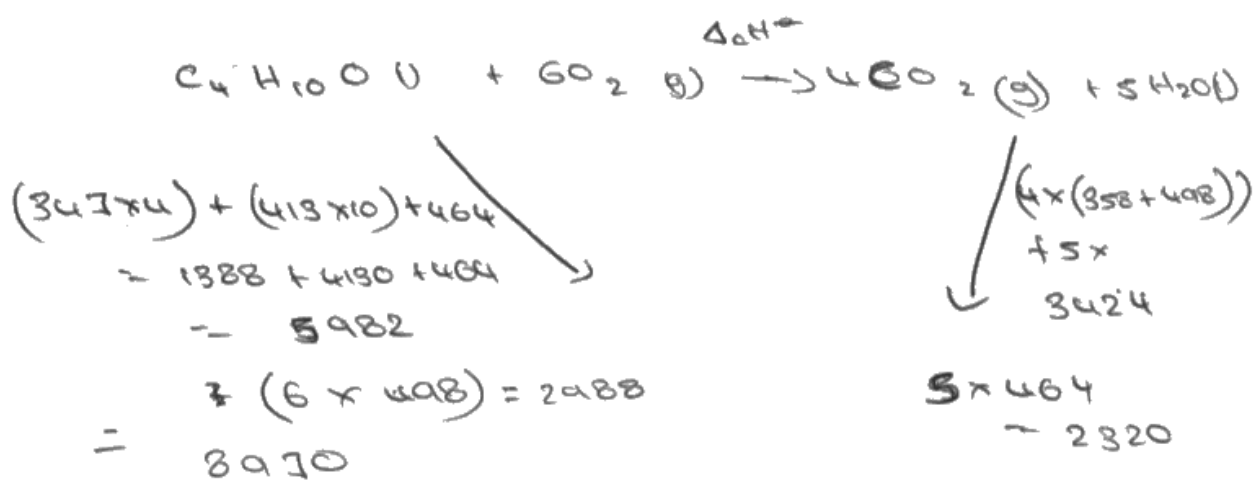 ΔcH⦵
C₄H₁₀O (l) + 6O₂ (g) → 4CO₂ (g) + 5H₂O(l)
(347×4) + (413×10) + 464
= 1388 + 4130 + 464
= 5982
+ (6 × 498) = 2988
= 8970
(4×(358+498))
+ 5×
3424
5 × 464
= 2320